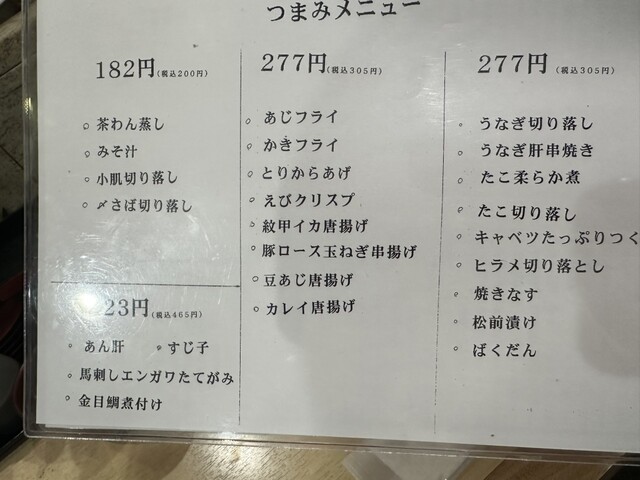 つまみメニュー
182円(税込200円)
○ 茶わん蒸し
○ みそ汁
○ 小肌切り落し
○ 〆さば切り落し
23円(税込465円)
○ あん肝 ○ すじ子
○ 馬刺しエンガワたてがみ
○ 金目鯛煮付け
277円(税込305円)
○ あじフライ
○ かきフライ
○ とりからあげ
○ えびクリスプ
○ 紋甲イカ唐揚げ
○ 豚ロース玉ねぎ串揚げ
○ 豆あじ唐揚げ
○ カレイ唐揚げ
277円(税込305円)
○ うなぎ切り落し
○ うなぎ肝串焼き
○ たこ柔らか煮
○ たこ切り落し
○ キャベツたっぷりつく
○ ヒラメ切り落とし
○ 焼きなす
○ 松前漬け
○ ばくだん